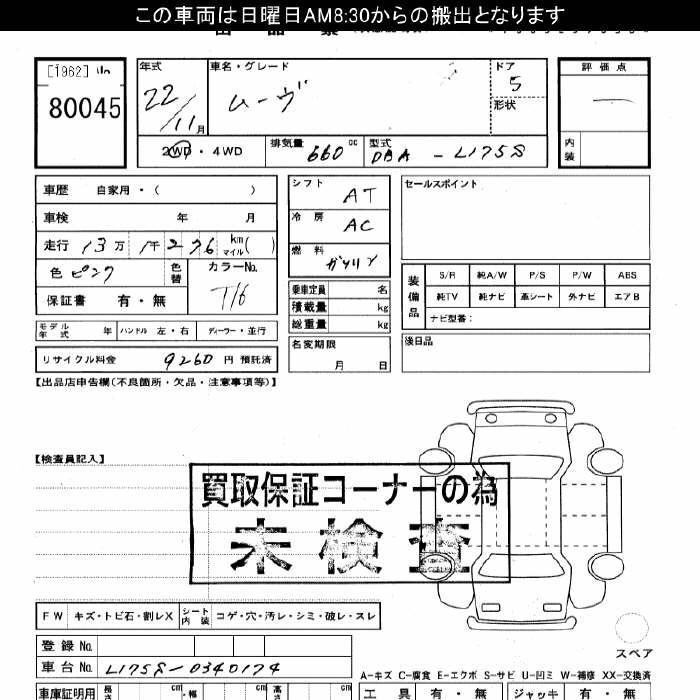 この車両は日曜日AM8:30からの搬出となります
[1962]
80045
年式
22/11月
車名・グレード
ムーヴ
ドア
5
形状
評価点
内装
2WD・4WD
排気量 660 cc
型式 DBA - L175S
車歴 自家用・( )
車検 年 月
走行 13万 1千276 km マイル( )
色 ピンク
色替
カラーNo.
T16
保証書 有・無
モデル年式 年
ハンドル 左・右
ディーラー・並行
リサイクル料金 9260 円 預託済
シフト AT
冷房 AC
燃料 ガソリン
乗車定員 名
積載量 kg
総重量 kg
名変期限
月 日
セールスポイント
装備品
S/R 純A/W P/S P/W ABS
純TV 純ナビ 革シート 外ナビ エアB
ナビ型番:
後日品
【出品店申告欄(不良箇所・欠品・注意事項等)】
【検査員記入】
買取保証コーナーの為
未検査
FW キズ・トビ石・割レX
シート内装 コゲ・穴・汚レ・シミ・破レ・スレ
登録No.
車台No. L175S-0340174
スペア
A-キズ C-腐食 E-エクボ S-サビ U-凹ミ W-補修 XX-交換済
車庫証明用 長さ cm ・幅 cm 高さ cm
工具 有・無 ジャッキ 有・無